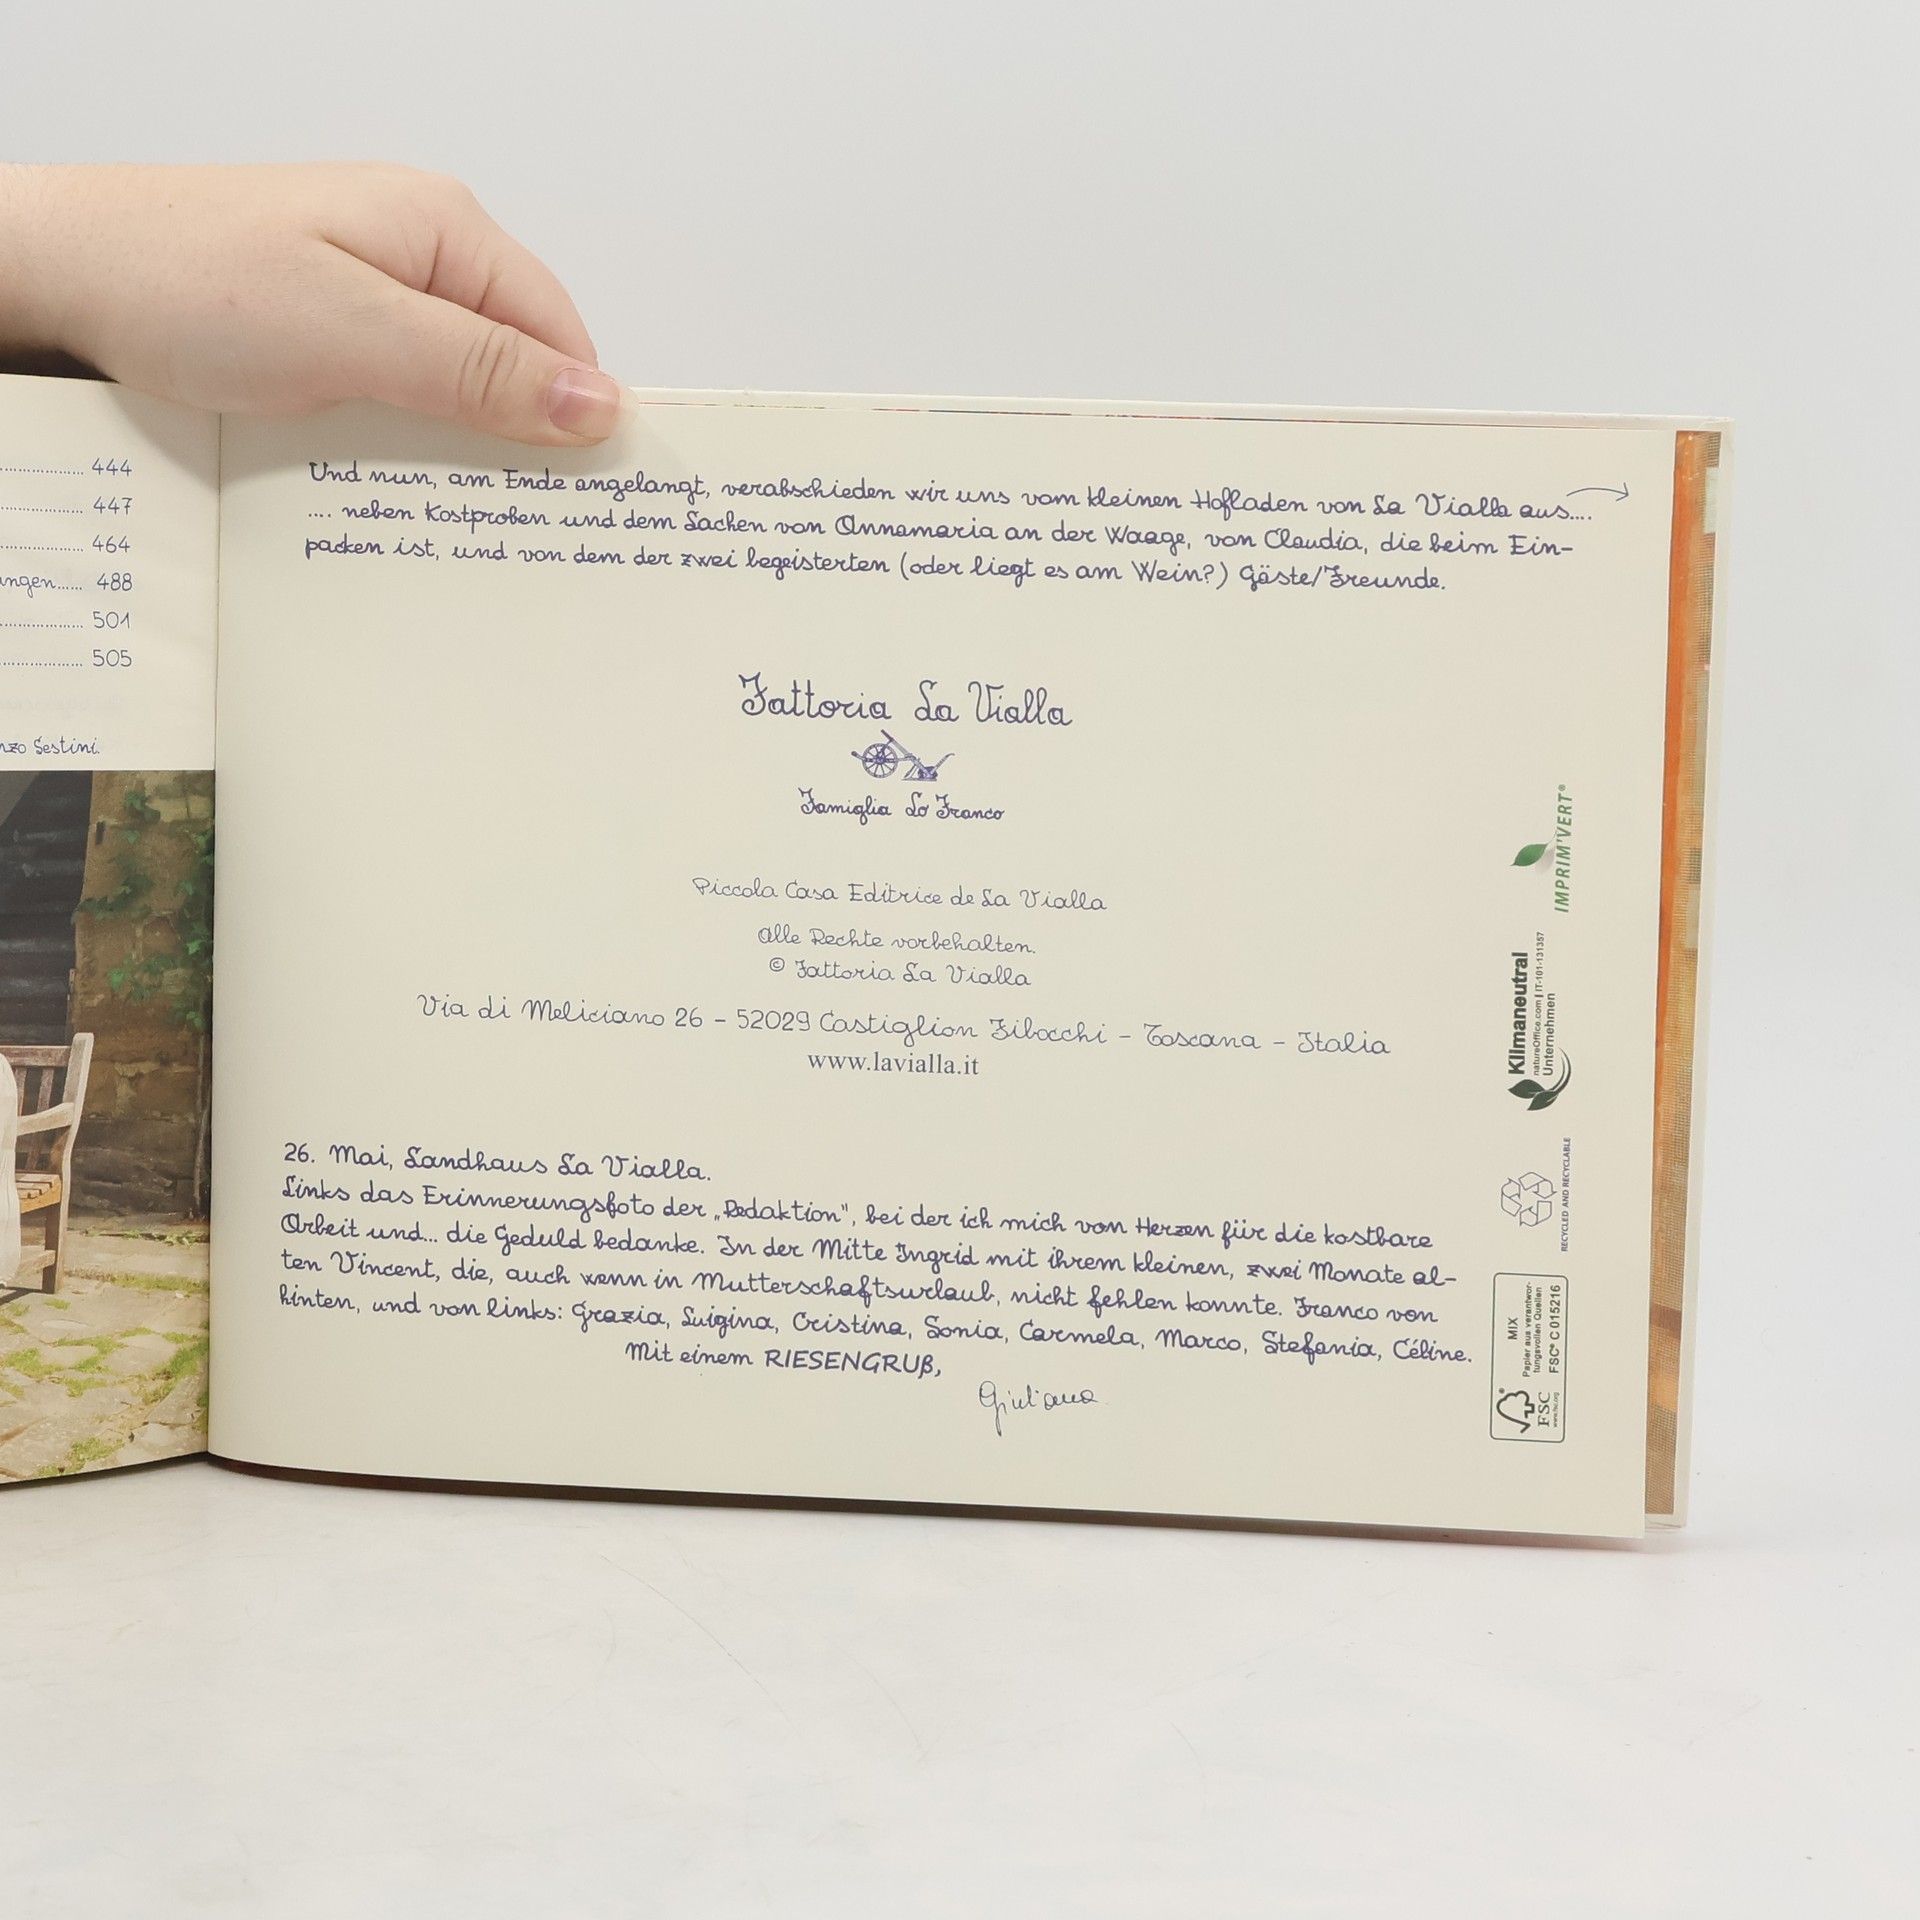 ........ 444
........ 447
........ 464
ungen...... 488
........ 501
........ 505
nzo Sestini.
Und nun, am Ende angelangt, verabschieden wir uns vom kleinen Hofladen von La Vialla aus....
.... neben Kostproben und dem Lachen von Annamaria an der Waage, von Claudia, die beim Ein-
packen ist, und von dem der zwei begeisterten (oder liegt es am Wein?) Gäste/Freunde.
Fattoria La Vialla
Famiglia Lo Franco
Piccola Casa Editrice de La Vialla
Alle Rechte vorbehalten.
© Fattoria La Vialla
Via di Meliciano 26 - 52029 Castiglion Fibocchi - Toscana - Italia
www.lavialla.it
26. Mai, Landhaus La Vialla.
Links das Erinnerungsfoto der „Redaktion", bei der ich mich von Herzen für die kostbare
Arbeit und... die Geduld bedanke. In der Mitte Ingrid mit ihrem kleinen, zwei Monate al-
ten Vincent, die, auch wenn in Mutterschaftsurlaub, nicht fehlen konnte. Franco von
hinten, und von links: Grazia, Luigina, Cristina, Sonia, Carmela, Marco, Stefania, Céline.
Mit einem RIESENGRUß,
Giuliana
IMPRIM'VERT®
Klimaneutral
natureOffice.com | IT-101-131357
Unternehmen
RECYCLED AND RECYCLABLE
MIX
Papier aus verantwor-
tungsvollen Quellen
FSC® C015216
FSC
www.fsc.org